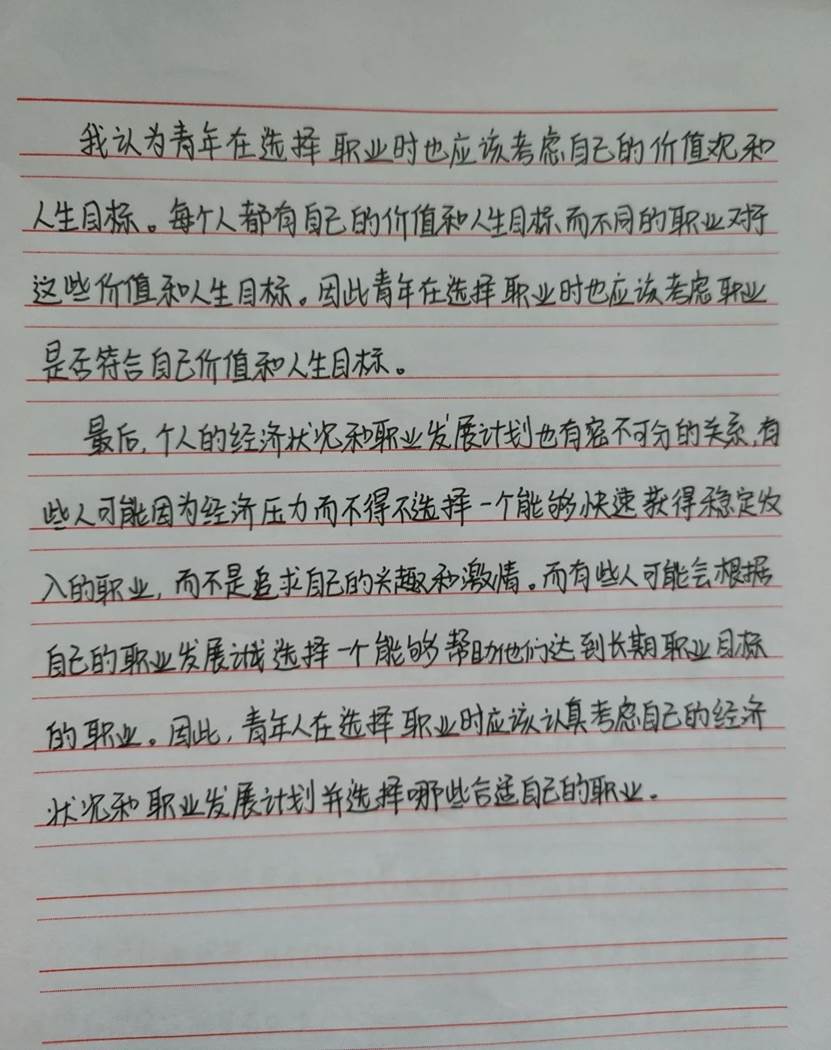 我认为青年在选择职业时也应该考虑自己的价值观和
人生目标。每个人都有自己的价值和人生目标、而不同的职业对于
这些价值和人生目标。因此青年在选择职业时也应该考虑职业
是否符合自己价值和人生目标。
最后,个人的经济状况和职业发展计划也有密不可分的关系,有
些人可能因为经济压力而不得不选择一个能够快速获得稳定收
入的职业,而不是追求自己的兴趣和激情。而有些人可能会根据
自己的职业发展计划选择一个能够帮助他们达到长期职业目标
的职业。因此,青年人在选择职业时应该认真考虑自己的经济
状况和职业发展计划并选择哪些合适自己的职业.